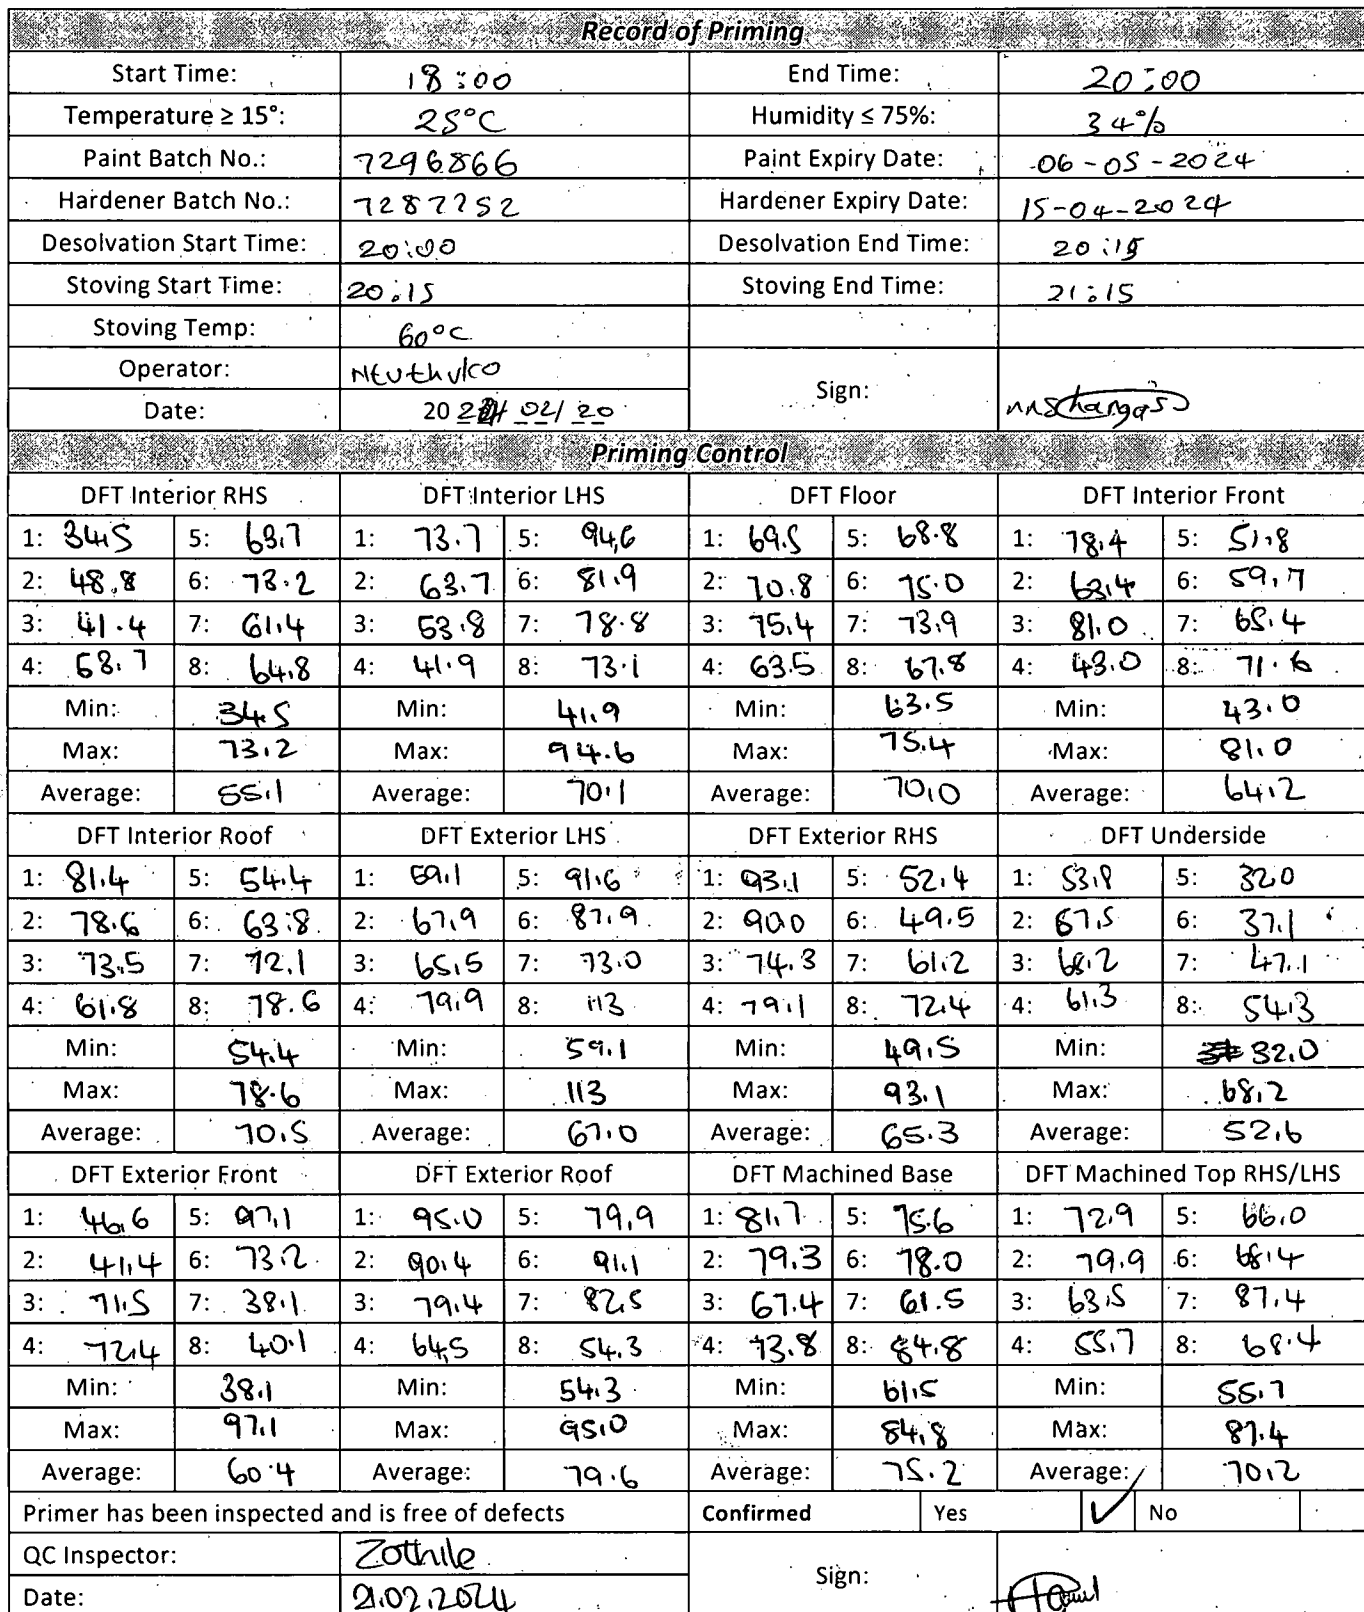 Record of Priming
Start Time: 18:00 End Time: 20:00
Temperature ≥ 15°: 25°C Humidity ≤ 75%: 34%
Paint Batch No.: 7296866 Paint Expiry Date: 06-05-2024
Hardener Batch No.: 7287252 Hardener Expiry Date: 15-04-2024
Desolvation Start Time: 20:00 Desolvation End Time: 20:15
Stoving Start Time: 20:15 Stoving End Time: 21:15
Stoving Temp: 60°C
Operator: Ntuthuko Sign:
Date: 2024/02/20
Priming Control
DFT Interior RHS DFT Interior LHS DFT Floor DFT Interior Front
1: 34.5 5: 63.7 1: 73.7 5: 94,6 1: 69.5 5: 68.8 1: 78.4 5: 51.8
2: 48.8 6: 73.2 2: 63.7 6: 81.9 2: 70.8 6: 75.0 2: 63.4 6: 59.7
3: 41.4 7: 61.4 3: 53.8 7: 78.8 3: 75.4 7: 73.9 3: 81.0 7: 65.4
4: 58.7 8: 64.8 4: 41.9 8: 73.1 4: 63.5 8: 67.8 4: 43.0 8: 71.6
Min: 34.5 Min: 41.9 Min: 63.5 Min: 43.0
Max: 73.2 Max: 94.6 Max: 75.4 Max: 81.0
Average: 55.1 Average: 70.1 Average: 70.0 Average: 64.2
DFT Interior Roof DFT Exterior LHS DFT Exterior RHS DFT Underside
1: 81.4 5: 54.4 1: 59.1 5: 91.6 1: 93.1 5: 52.4 1: 53.8 5: 32.0
2: 78.6 6: 63.8 2: 67.9 6: 87.9 2: 90.0 6: 49.5 2: 67.5 6: 37.1
3: 73.5 7: 72.1 3: 65.5 7: 73.0 3: 74.3 7: 61.2 3: 68.2 7: 47.1
4: 61.8 8: 78.6 4: 79.9 8: 113 4: 79.1 8: 72.4 4: 61.3 8: 54.3
Min: 54.4 Min: 59.1 Min: 49.5 Min: 32.0
Max: 78.6 Max: 113 Max: 93.1 Max: 68.2
Average: 70.5 Average: 67.0 Average: 65.3 Average: 52.6
DFT Exterior Front DFT Exterior Roof DFT Machined Base DFT Machined Top RHS/LHS
1: 46.6 5: 97.1 1: 95.0 5: 79.9 1: 81.7 5: 75.6 1: 72.9 5: 66.0
2: 41.4 6: 73.2 2: 90.4 6: 91.1 2: 79.3 6: 78.0 2: 79.9 6: 68.4
3: 71.5 7: 38.1 3: 79.4 7: 82.5 3: 67.4 7: 61.5 3: 63.5 7: 87.4
4: 72.4 8: 40.1 4: 64,5 8: 54.3 4: 73.8 8: 84.8 4: 55.7 8: 68.4
Min: 38.1 Min: 54.3 Min: 61.5 Min: 55.7
Max: 97.1 Max: 95.0 Max: 84.8 Max: 87.4
Average: 60.4 Average: 79.6 Average: 75.2 Average: 70.2
Primer has been inspected and is free of defects Confirmed Yes ✓ No
QC Inspector: Zothile Sign:
Date: 21.02.2024